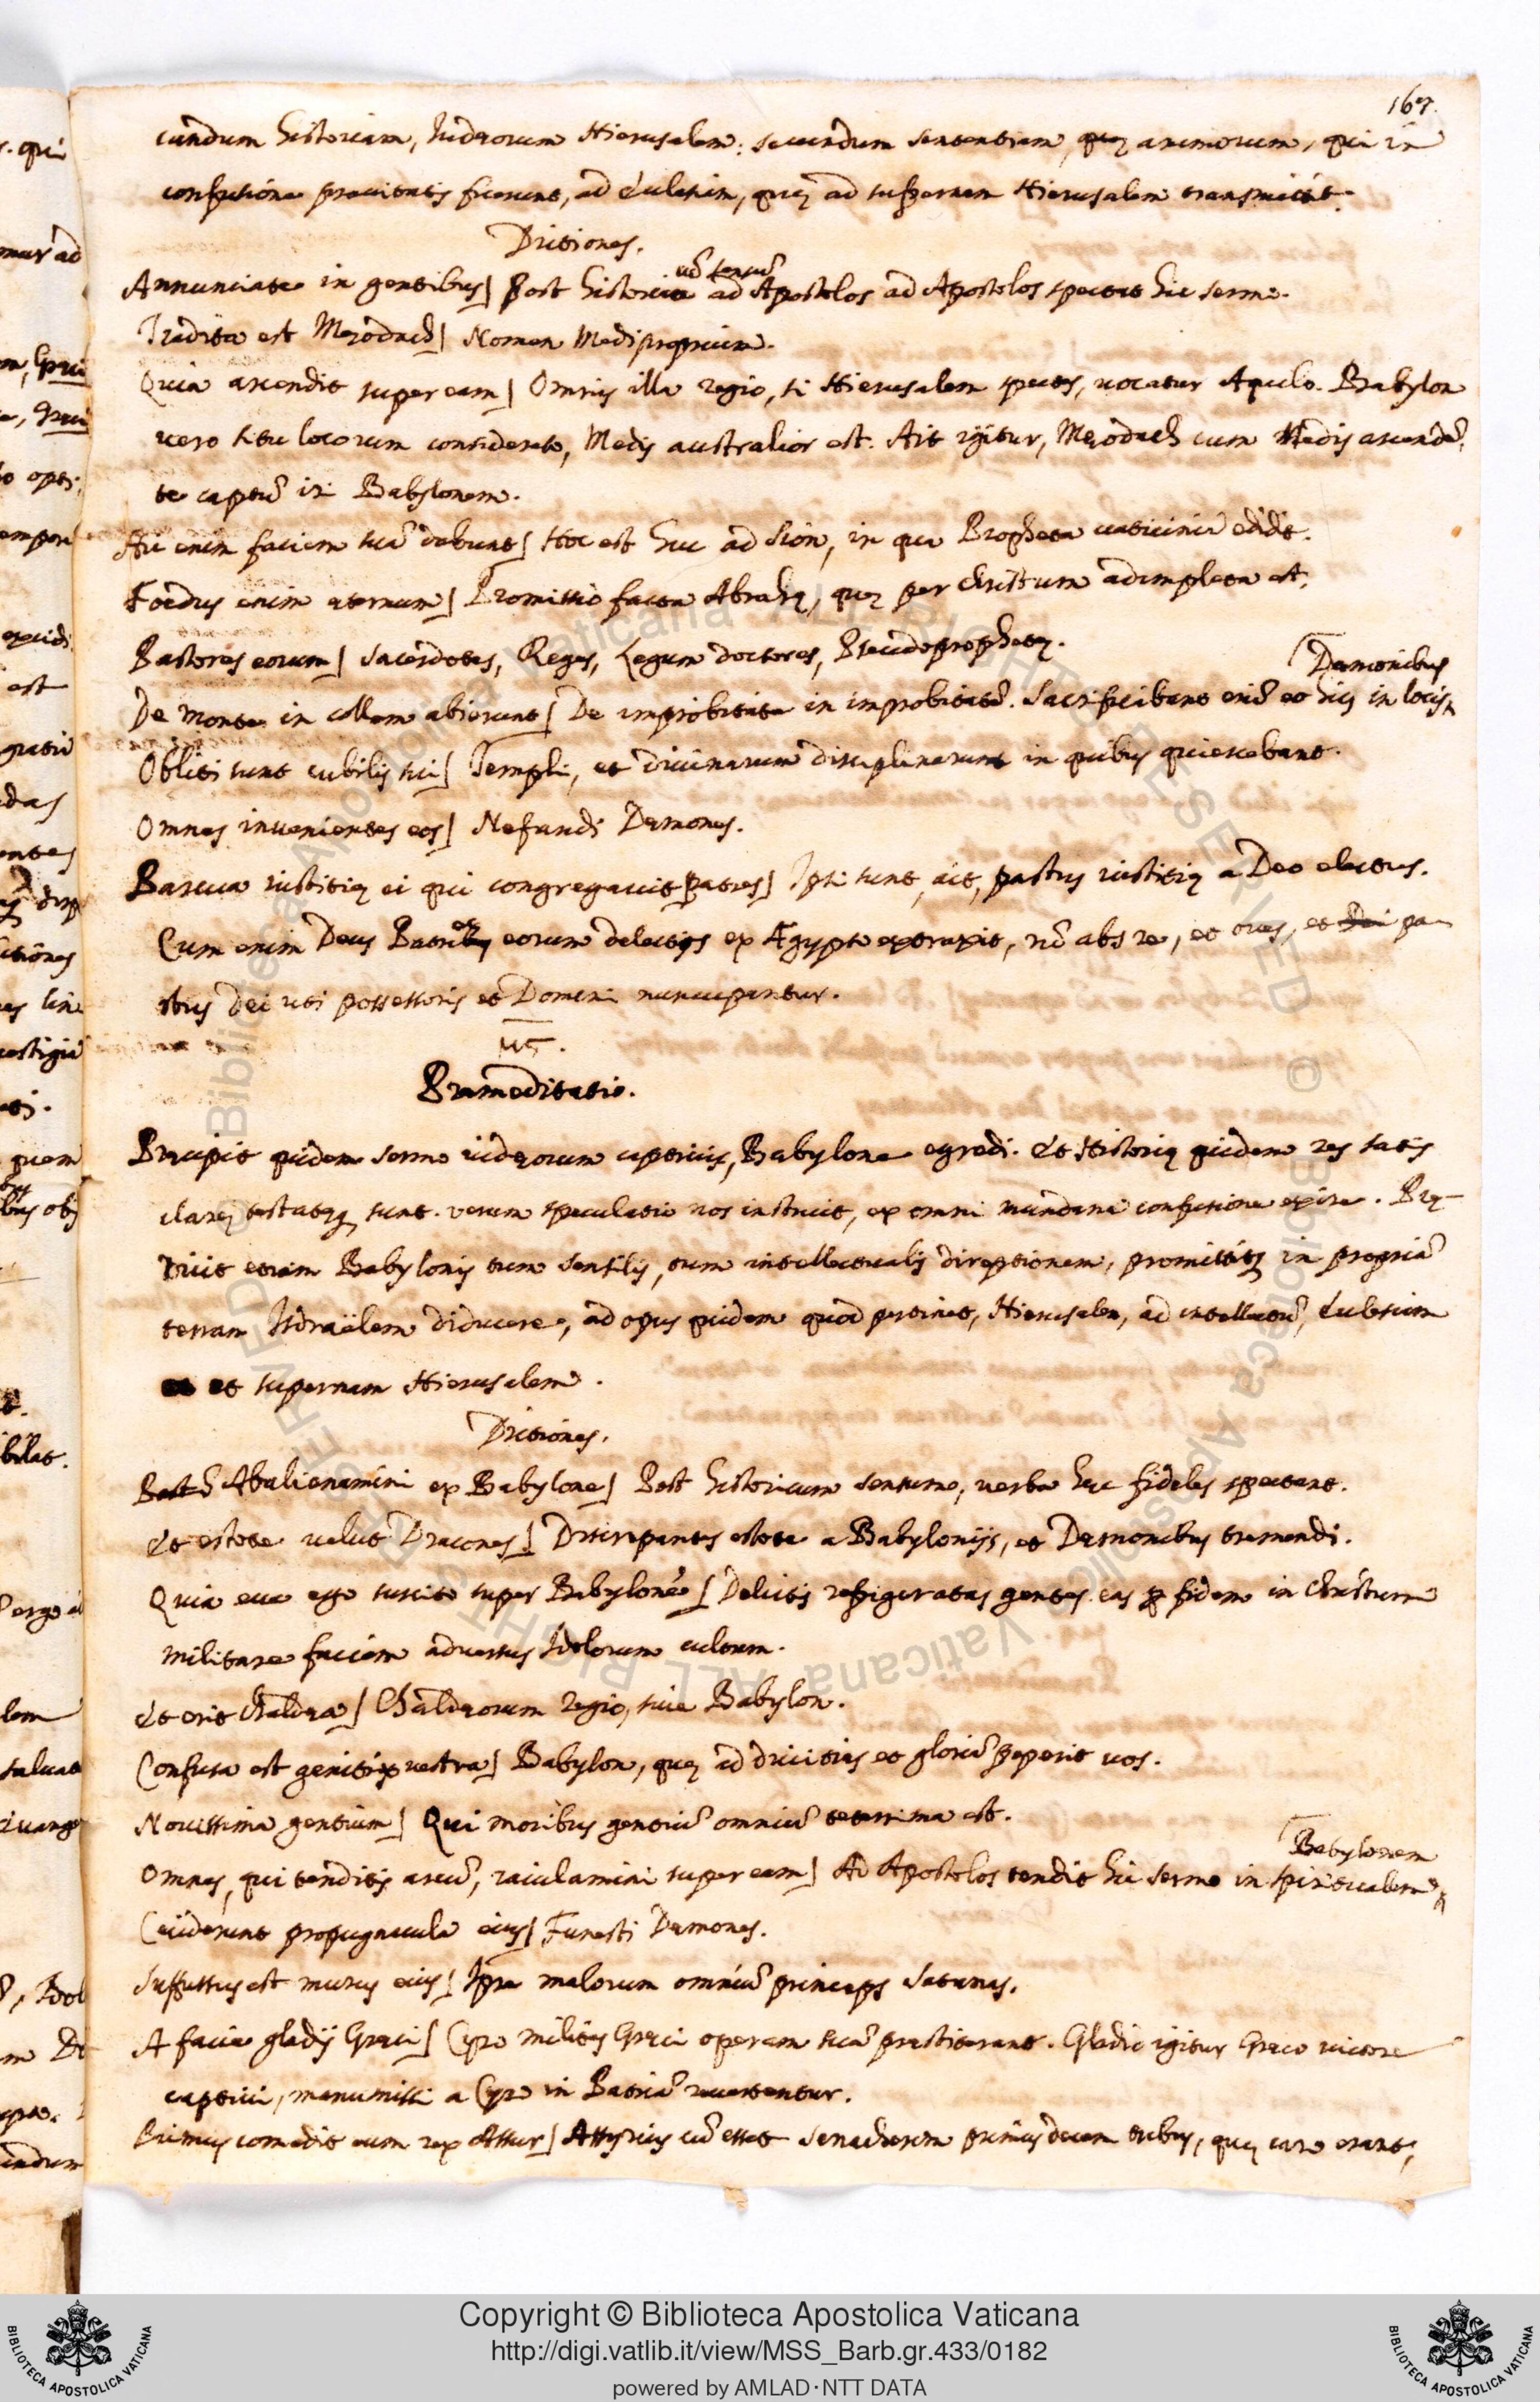 167.
cundum historiam, Iudæorum Hierusalem: secundum sententiam, quę animorum, qui in
confusione prauitatis fuerunt, ad Eulesim, quę ad supernam Hierusalem transmittit.
Dictiones.
Annunciate in gentibus] Post historicũ sensũ ad Apostolos ad Apostolos spectat hic sermo.
Tradita est Merodach] Nomen Medi proprium.
Quia ascendit super eam] Omnis illa regio, si Hierusalem spectes, uocatur Aquilo. Babylon
uero situ locorum considerato, Medis australior est. Ait igitur, Merodach cum Medis ascendẽ
te captũ iri Babylonem.
Huc enim faciem suã dabunt] Hoc est huc ad Sion, in qua Propheta uaticiniũ edidit.
Foedus enim æternum] Promissio facta Abrahę, quę per Christum adimpleta est.
Pastores eorum] Sacerdotes, Reges, Legum doctores, Pseudoprophetę.
De monte in collem abierunt] De improbitate in improbitatẽ. Sacrificabant enim eo his in locis
Dæmonibus
Obliti sunt cubilis sui] Templi, et diuinarum disciplinarum in quibus quiescebant.
Omnes inuenientes eos] Nefandi Dæmones.
Pascua iustitię ei qui congregauit patres] Ipsi sunt, ait, pastus iustitię a Deo electus.
Cum enim Deus Patres eorum delectos ex Ægypto extraxit, nõ abs re, et oues, et Dei pa
stus Dei uti possessoris et Domini nuncupantur.
Præmeditatio.
Præcipit quidem sermo iudæorum captiuis, Babylone egredi. Et Historię quidem res satis
clarę testatęq sunt. verum speculatio nos instruit, ex omni mundana confusione exire. Prę
dicit etiam Babylonis tum sensilis, tum intellectualis direptionem, promittitq in propriã
terram Isdraëlem diducere, ad opus quidem quod pertinet, Hierusalem, ad intellectũ,
et supernam Hierusalem.
Dictiones.
Abalienamini ex Babylone] Post historicum sensum, uerba hęc fideles spectant.
Et estote uelut Dracones] Discrepantes estote a Babylonijs, et Dæmonibus tremendi.
Quia ecce ego suscito super Babylonẽ] Delictis refrigeratas gentes eas p fidem in Christum
militare faciam aduersus Idolorum cultum.
Et erit Chaldæa] Chaldæorum regio, siue Babylon.
Confusa est genitrix uestra] Babylon, quę ad diuitias et gloriã peperit uos.
Nouissima gentium] Qui moribus gentiũ omniũ teterrima est.
Omnes, qui tenditis arcũ, iaculamini super eam] Ad Apostolos tendit hic sermo in spiritualem
Babylonem
Ceciderunt propugnacula eius] Funesti Dæmones.
Suffossus est murus eius] Ipse malorum omniũ princeps Satanas.
A facie gladij Græci] Cyro milites Græci operam suã præstiterant. Gladio igitur Græco uictore
captiui, manumissi a Cyro in Patriã reuertentur.
Primus comedit eum rex Assur] Assyrius cũ esset Senacherim primus decem tribus, quę caro erant,